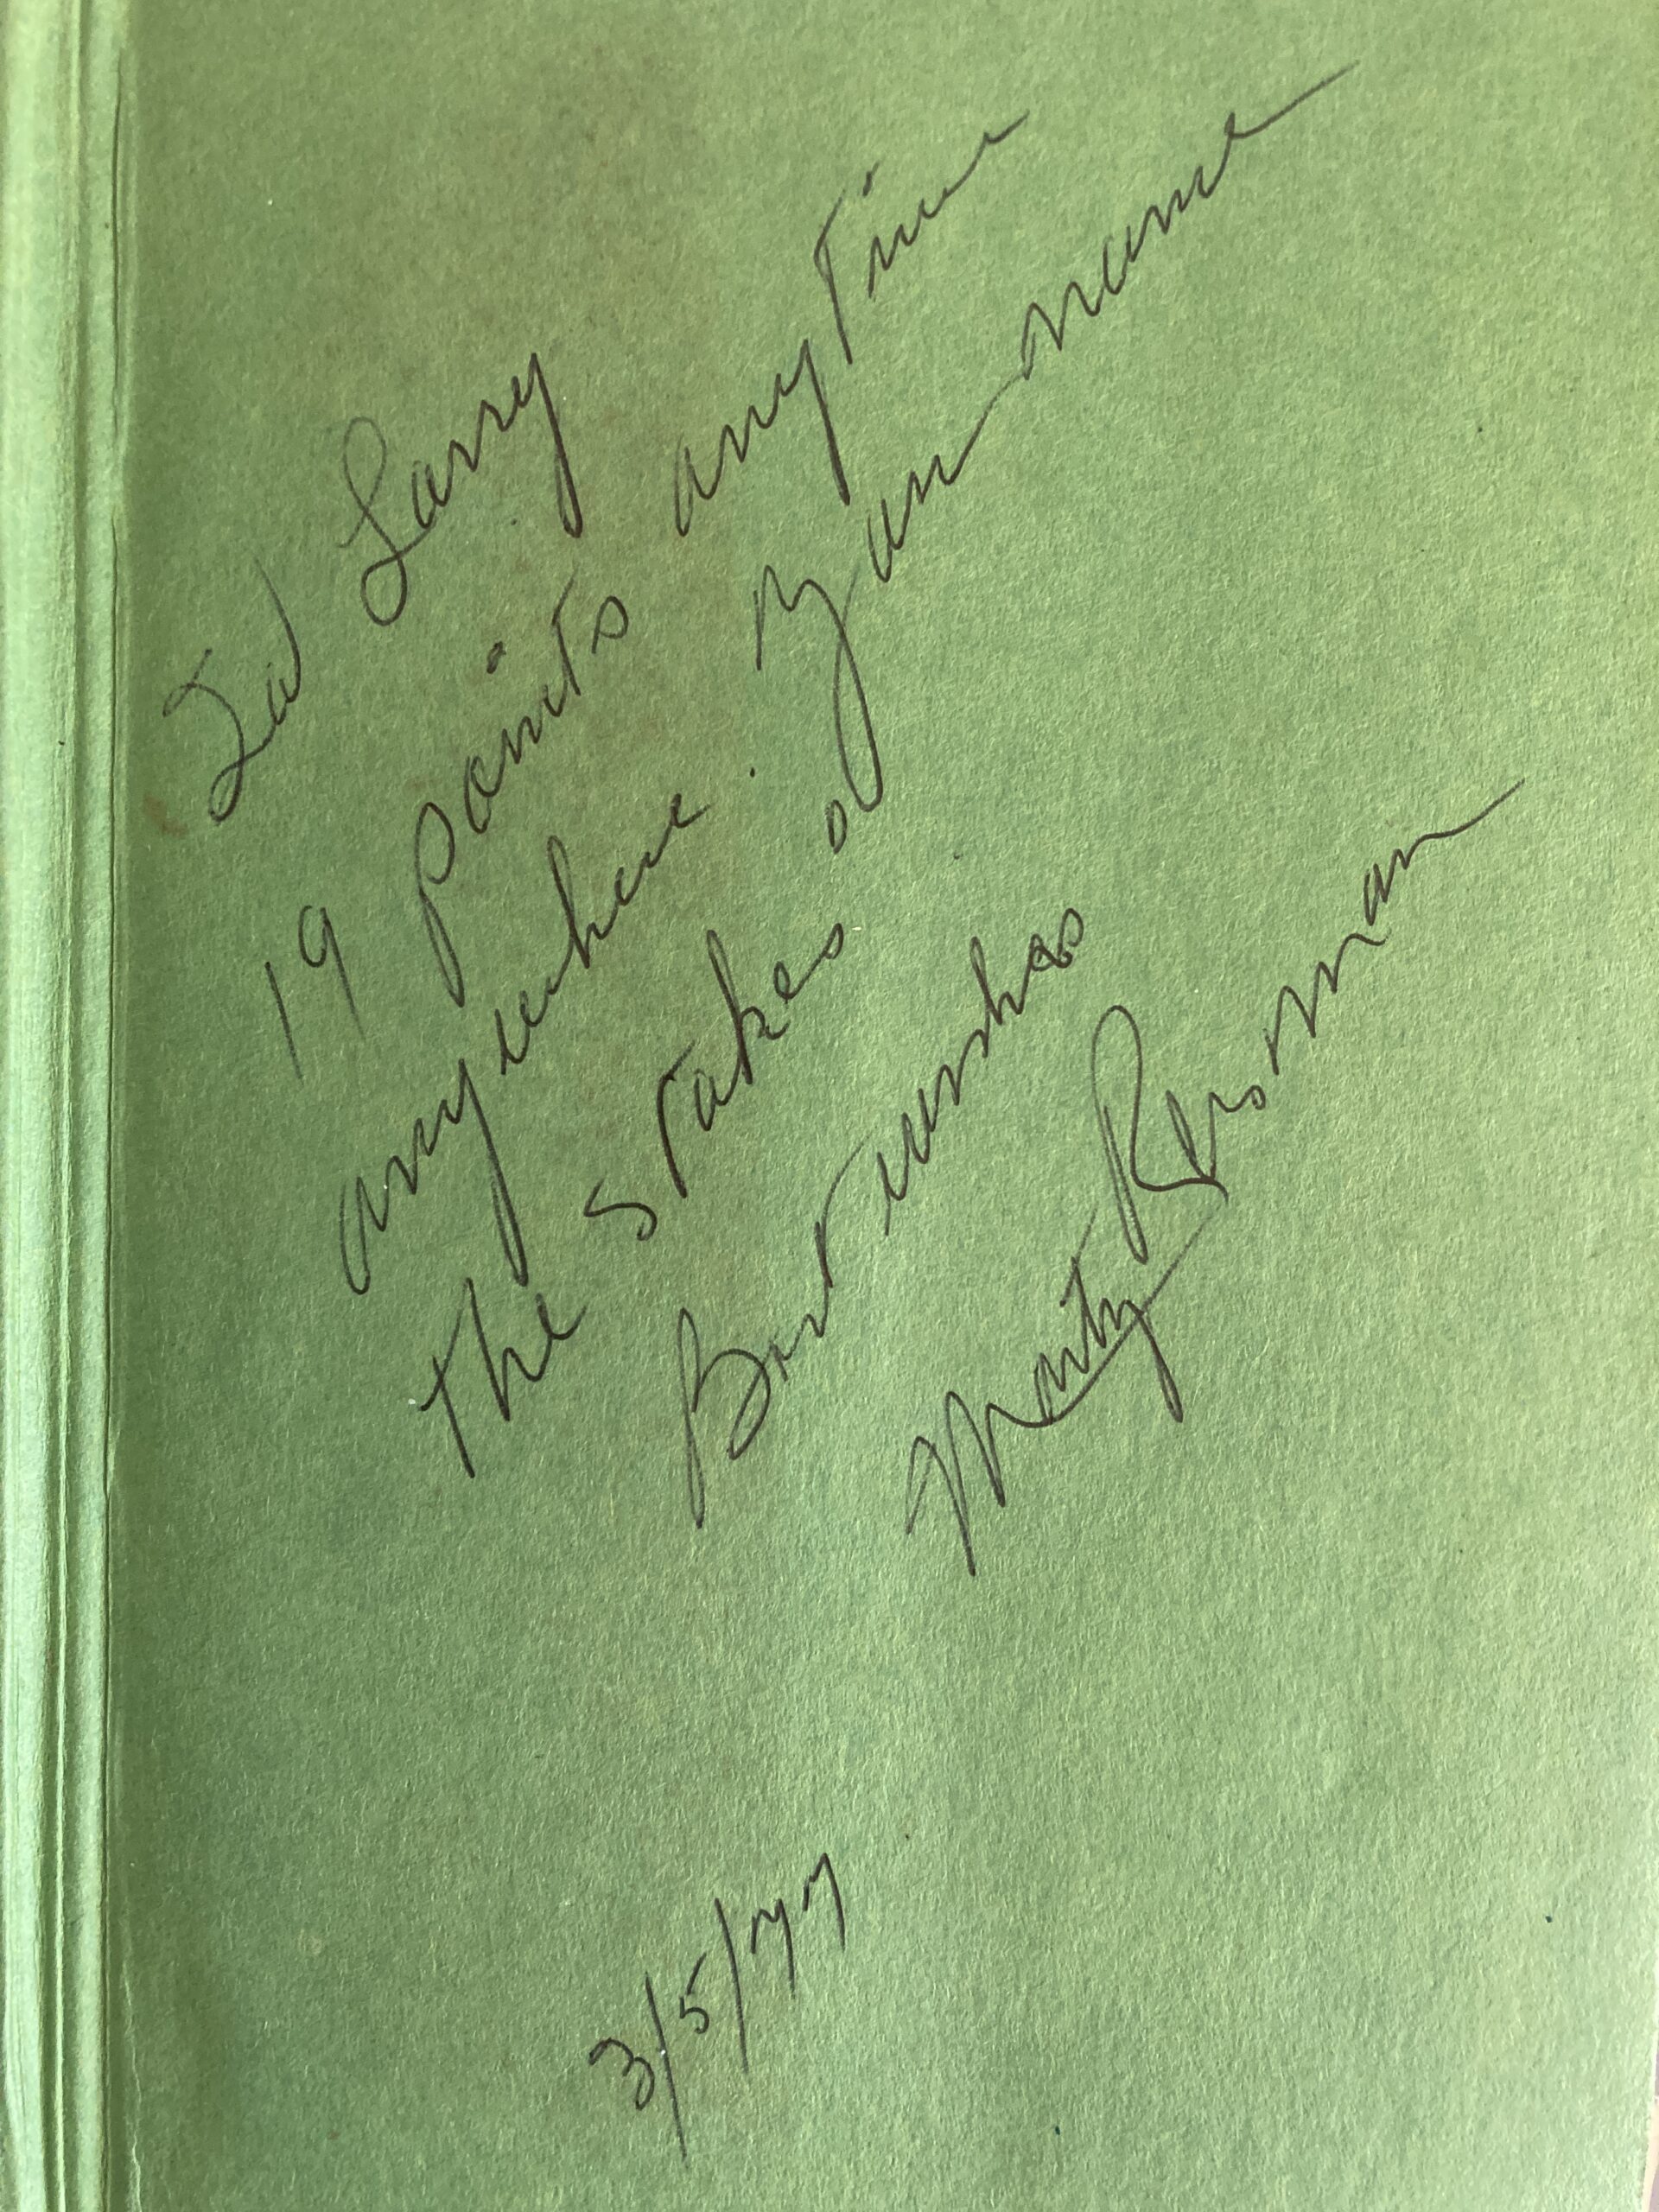 To Larry
19 points anytime
anywhere. You name
the stakes
Best wishes
Marty Reisman
3/5/77